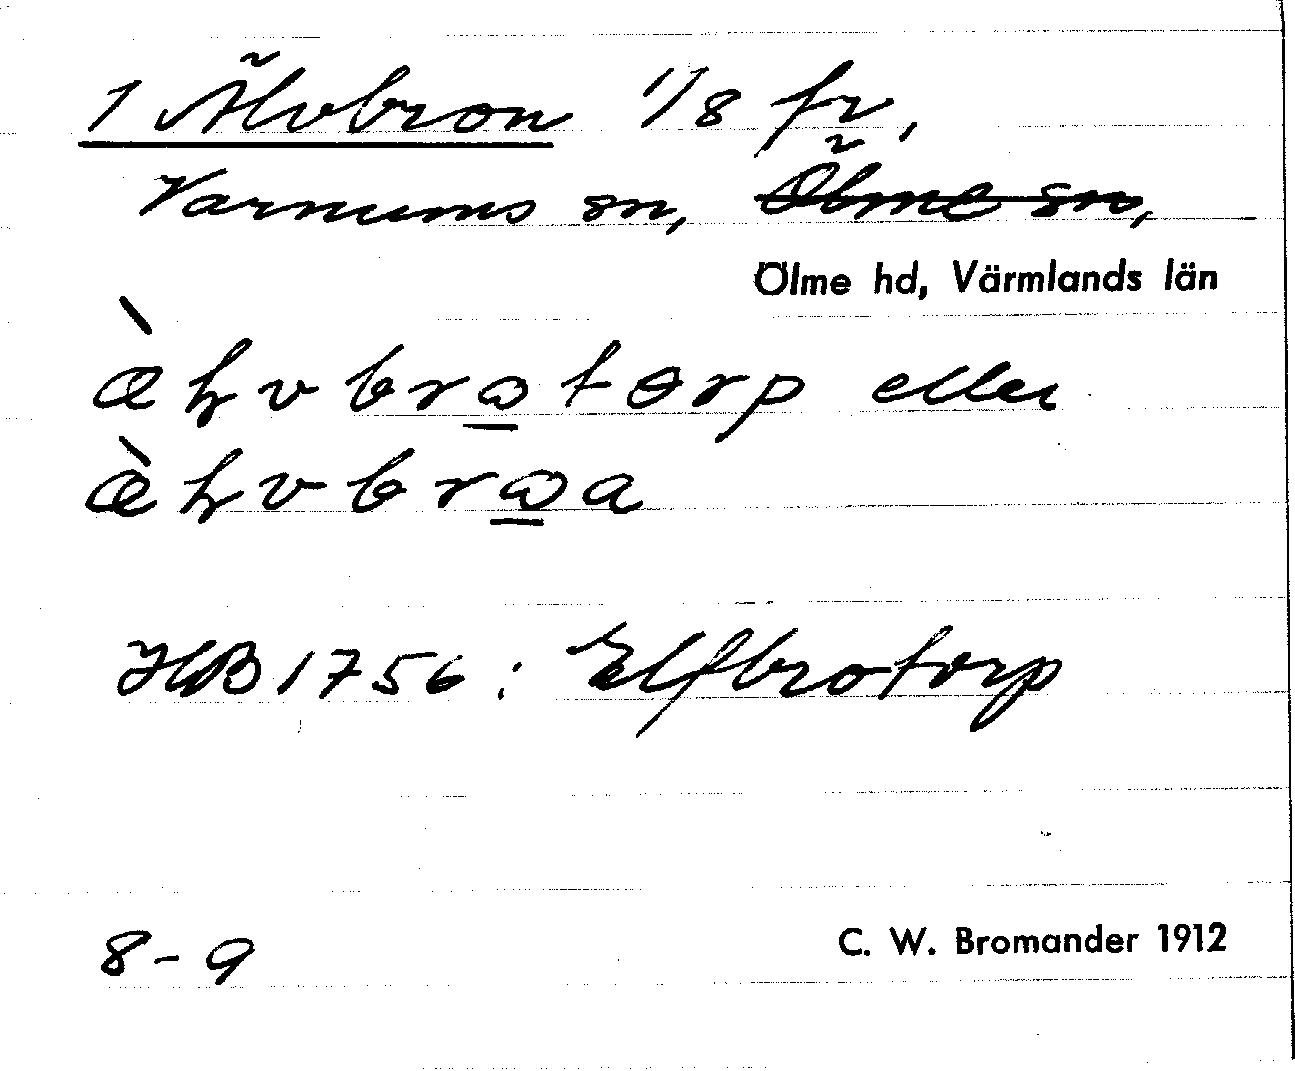 1 Älvbron 1/8 fr,
Varnums sn, Ölme sn,
Ölme hd, Värmlands län
æ̀ɧvbrɷ̱tɵrp eller
æ̀ɧvbrɷ̱a
HB 1756: Elfbrotorp
8-9
C. W. Bromander 1912